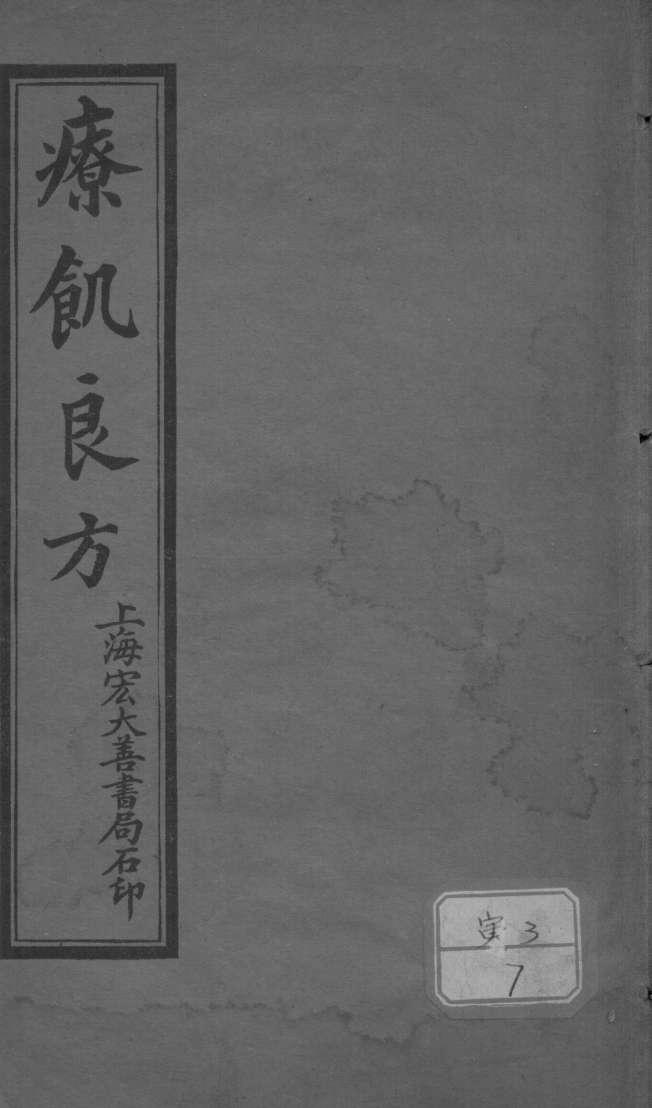 療飢良方
上海宏大善書局石印
寅 3
7